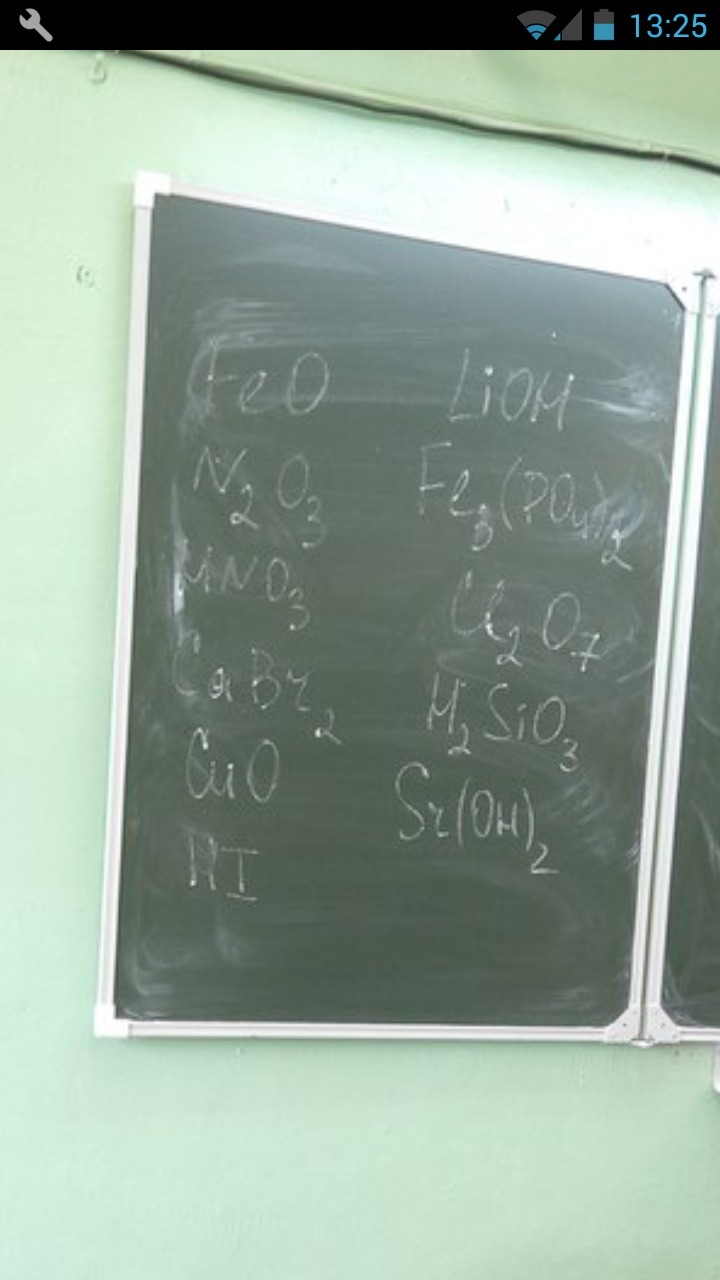 13:25
FeO
N₂O₃
HNO₃
CaBr₂
CuO
HI
LiOH
Fe₃(PO₄)₂
Cl₂O₇
H₂SiO₃
Sr(OH)₂